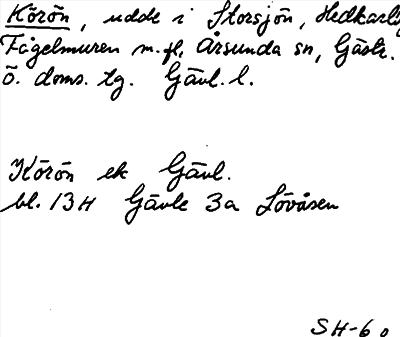 Körön, udde i Storsjön, Hedkarlby
Fågelmuren m.fl. Årsunda sn, Gästr.
ö. doms. tg. Gävl. l.
Körön ek Gävl.
bl. 13H Gävle 3a Lövåsen
SH-60